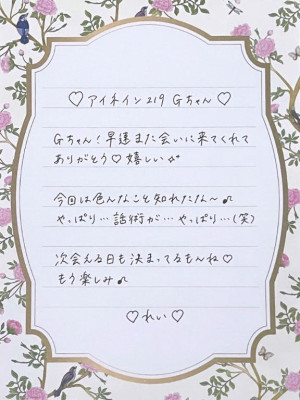 ♡アイネイン219 Gちゃん♡
Gちゃん！早速また会いに来てくれて
ありがとう♡嬉しい
今回は色んなこと知れたな〜♪
やっぱり…話術が…やっぱり…(笑)
次会える日も決まってるもんね♡
もう楽しみ♪
♡れい♡